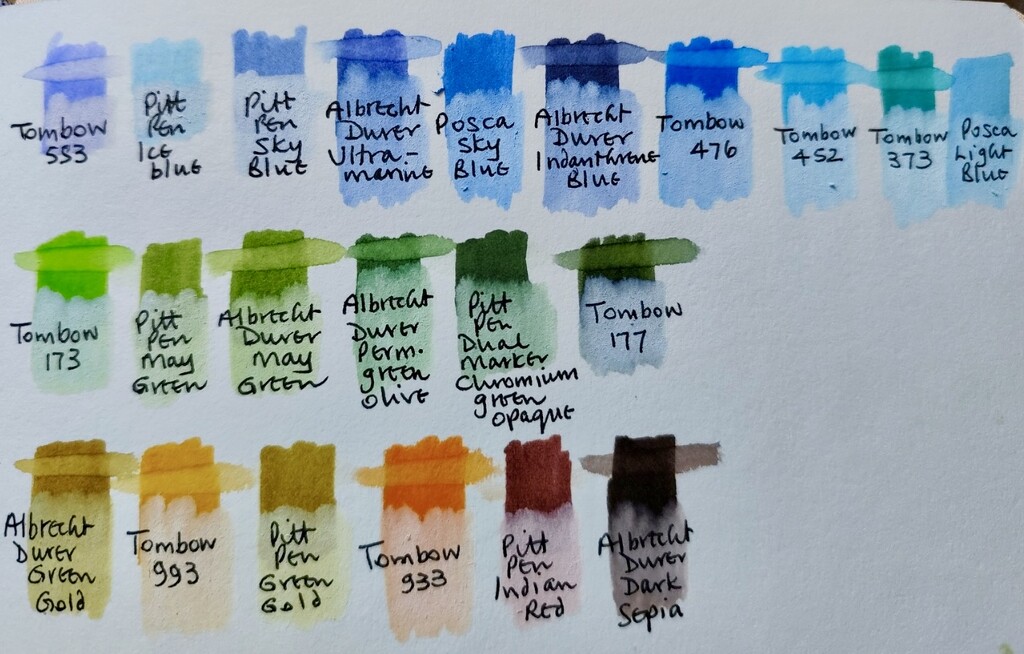 Tombow
553
Pitt
Pen
Ice
blue
Pitt
Pen
Sky
Blue
Albrecht
Durer
Ultra-
marine
Posca
Sky
Blue
Albrecht
Durer
Indanthrene
Blue
Tombow
476
Tombow
452
Tombow
373
Posca
Light
Blue
Tombow
173
Pitt
Pen
May
Green
Albrecht
Durer
May
Green
Albrecht
Durer
Perm.
green
Olive
Pitt
Pen
Dual
Marker
Chromium
green
opaque
Tombow
177
Albrecht
Durer
Green
Gold
Tombow
993
Pitt
Pen
Green
Gold
Tombow
933
Pitt
Pen
Indian
Red
Albrecht
Durer
Dark
Sepia